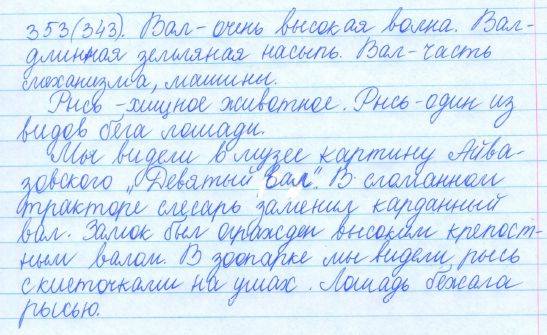 353(343). Вал - очень высокая волна. Вал -
длинная земляная насыпь. Вал - часть
механизма, машины.
Рысь - хищное животное. Рысь - один из
видов бега лошади.
Мы видели в музее картину Айва-
зовского „Девятый вал". В сломанном
тракторе слесарь заменил карданный
вал. Замок был ограждён высоким крепост-
ным валом. В зоопарке мы видели рысь
с кисточками на ушах. Лошадь бежала
рысью.